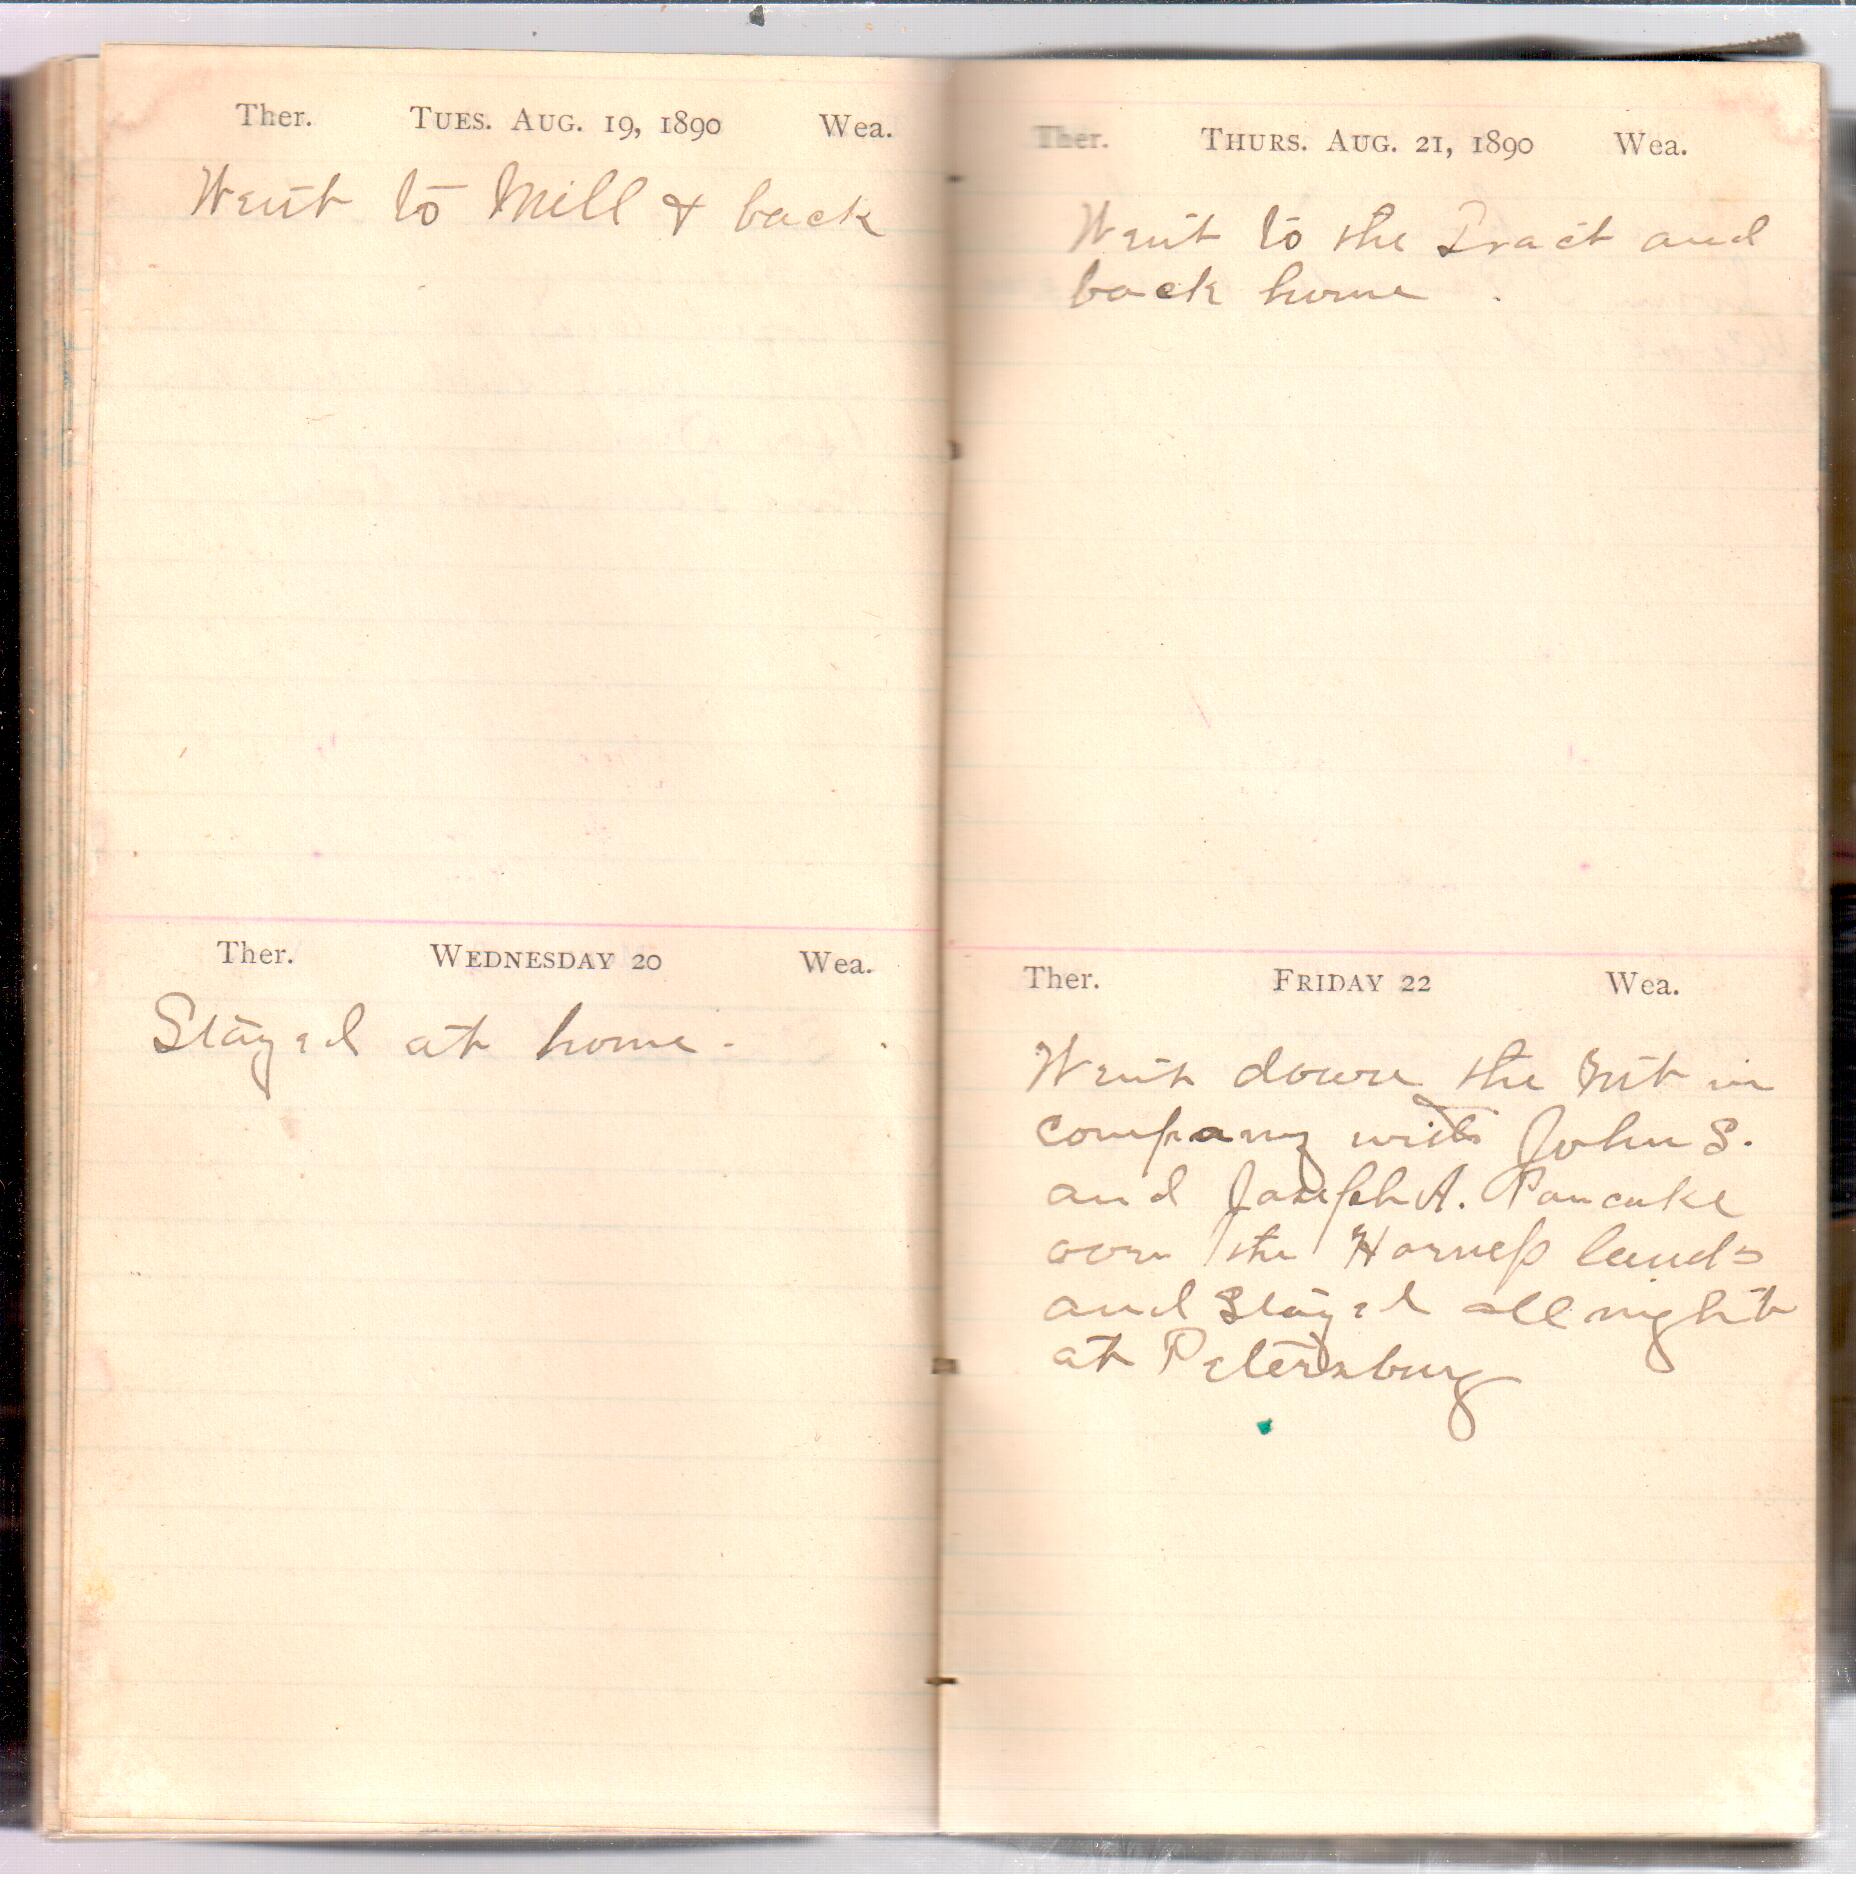 Ther. TUES. AUG. 19, 1890 Wea.
Went to Mill & back
Ther. WEDNESDAY 20 Wea.
Stayed at home.
Ther. THURS. AUG. 21, 1890 Wea.
Went to the Tract and
back home.
Ther. FRIDAY 22 Wea.
Went down the Mt in
company with John S.
and Joseph A. Pancake
over the Harness lands
and Stayed all night
at Petersburg